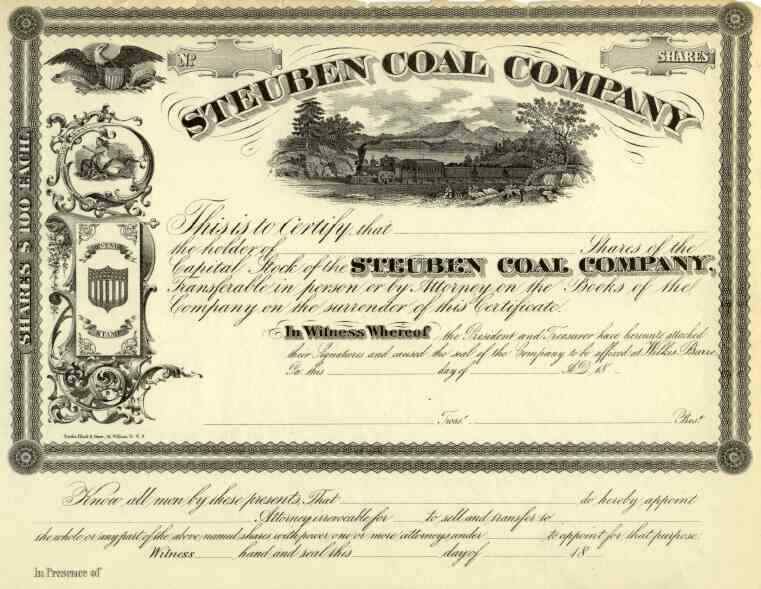 No.
SHARES
STEUBEN COAL COMPANY
SHARES $100 EACH.
STAMP
This is to Certify, that
the holder of Shares of the
Capital Stock of the STEUBEN COAL COMPANY,
Transferable in person or by Attorney on the Books of the
Company on the surrender of this Certificate.
In Witness Whereof the President and Treasurer have hereunto attached
their Signatures and caused the seal of the Company to be affixed at Wilkes Barre
Pa this day of A.D. 18
Treas. Prest.
Know all men by these presents, That do hereby appoint
Attorney irrevocable for to sell and transfer to
the whole or any part of the above named shares with power one or more attorneys under to appoint for that purpose.
Witness hand and seal this day of 18
In Presence of